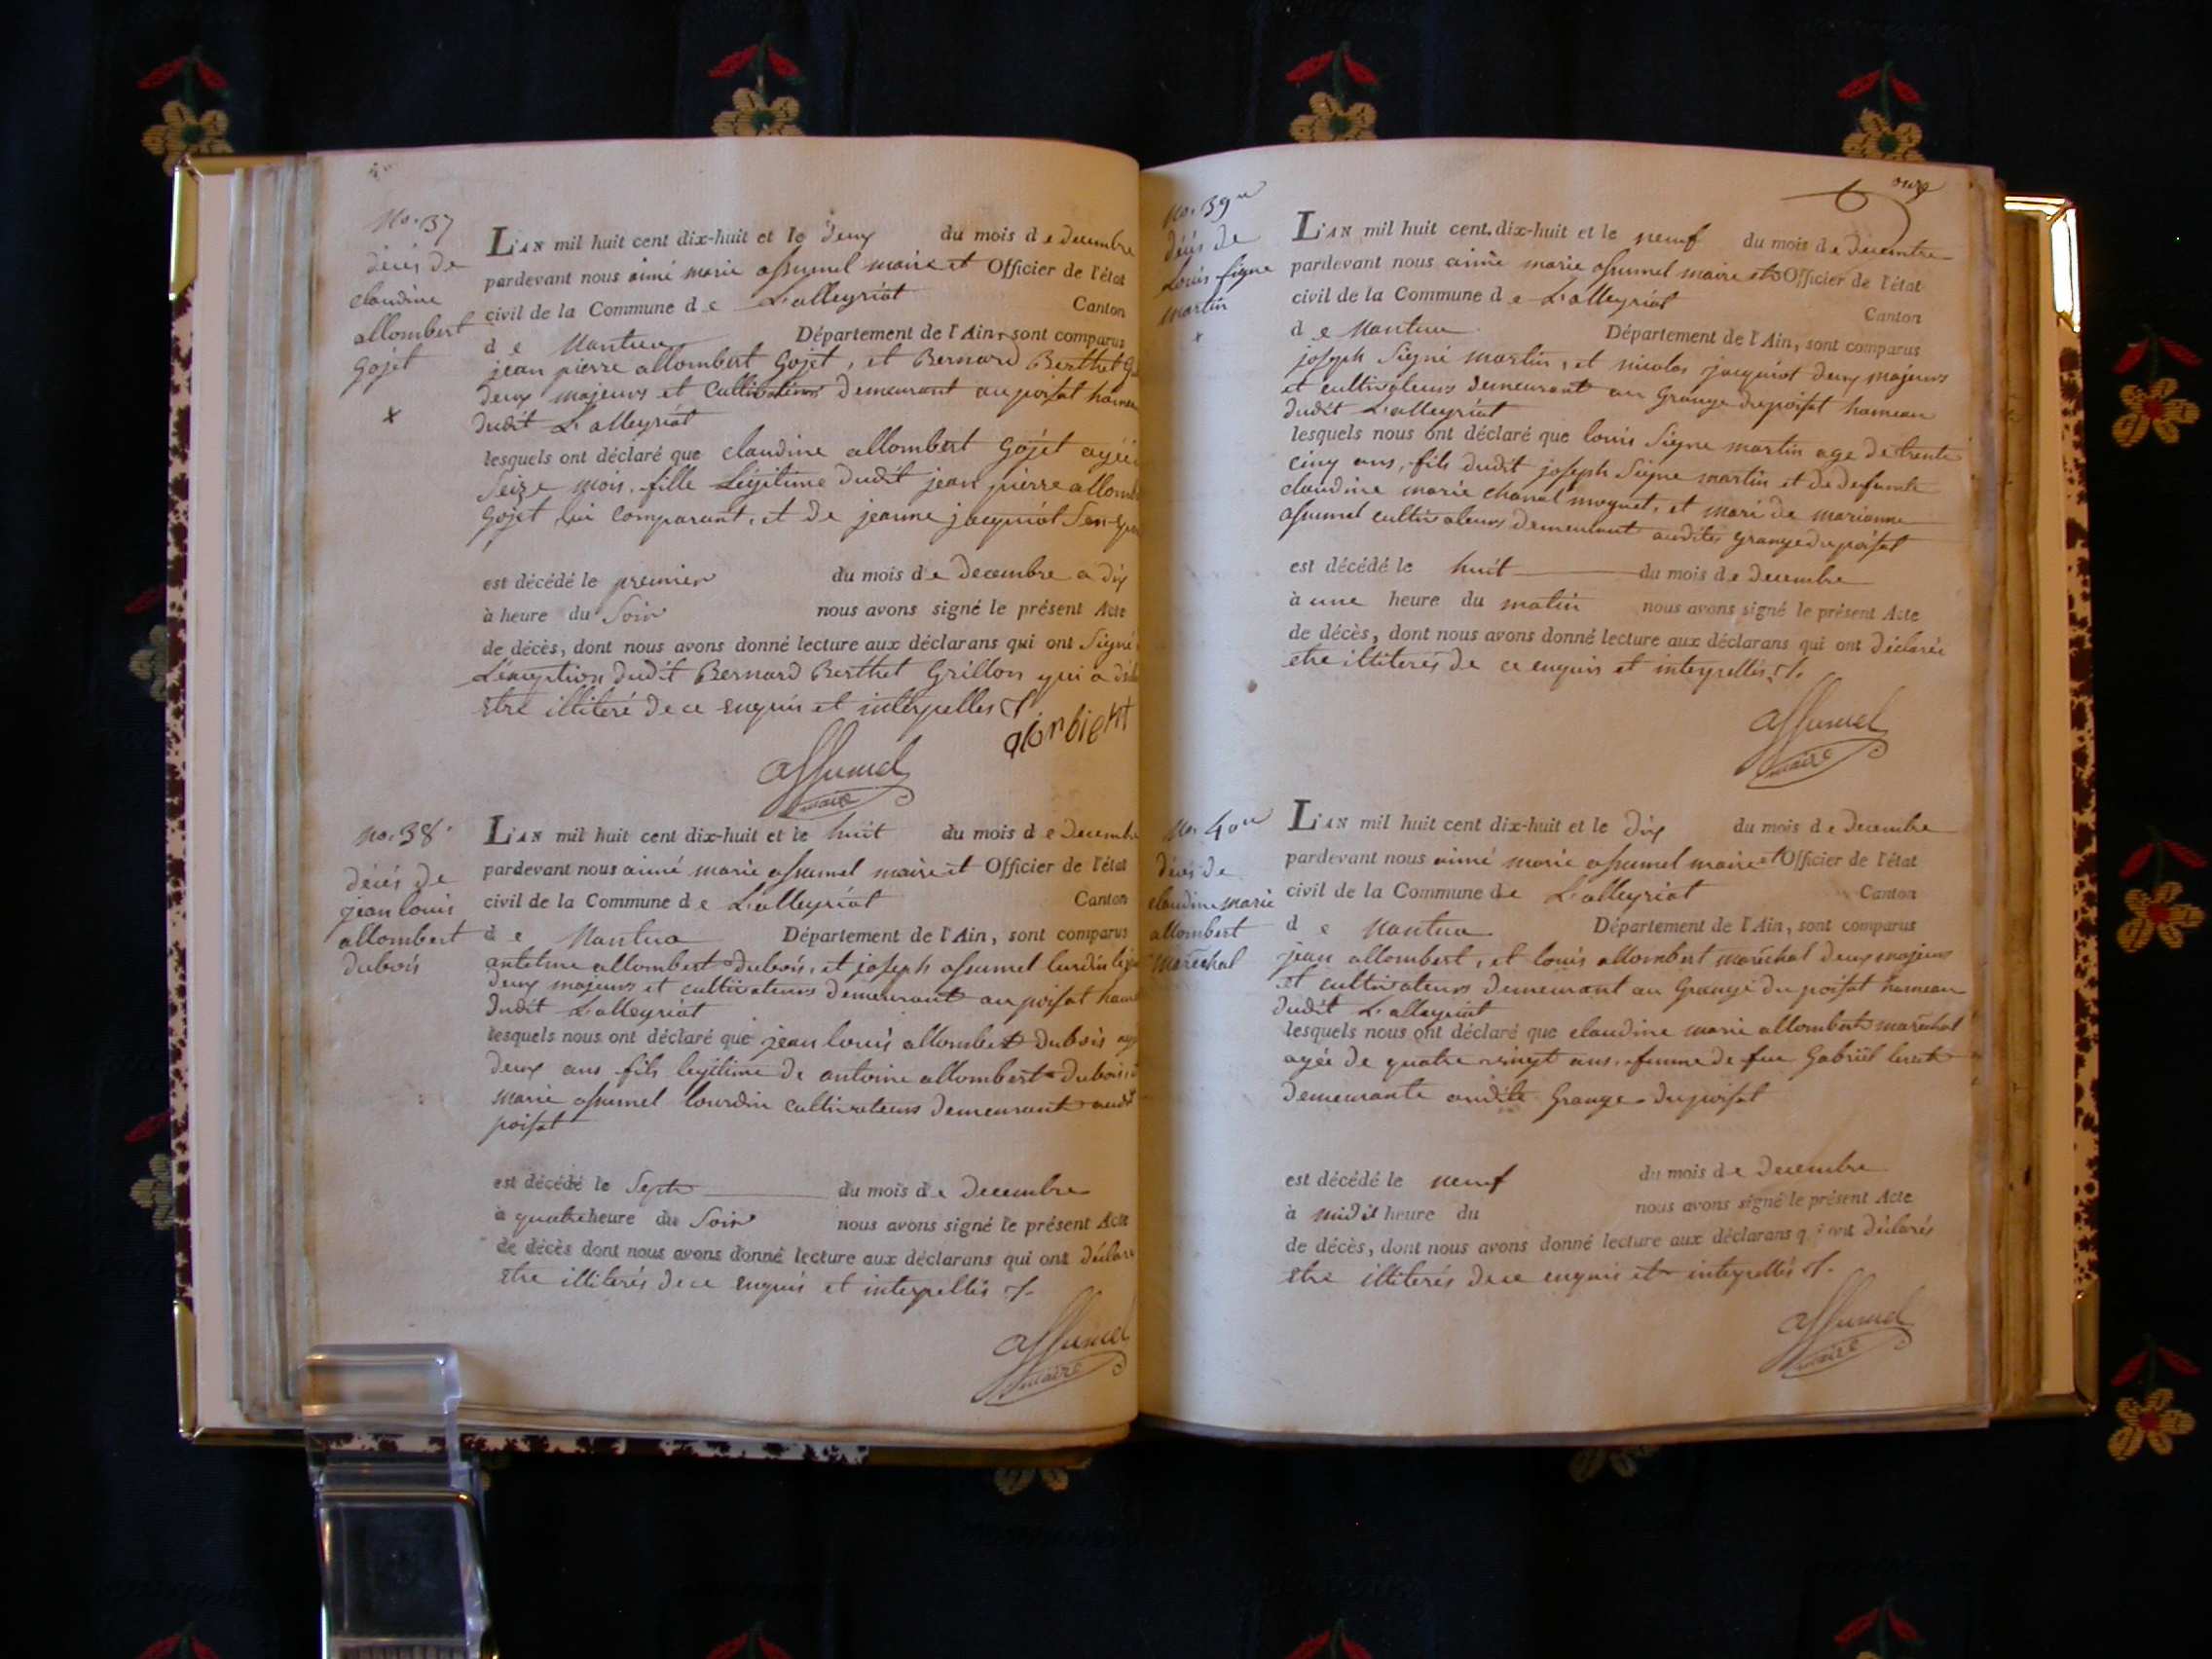 No. 37
décés de
claudine
allombert
gojet
L'AN mil huit cent dix-huit et le deux du mois de decembre
pardevant nous aimé marie assumel maire et Officier de l'état
civil de la Commune de L'alleyriat Canton
de Nantua Département de l'Ain, sont comparus
jean pierre allombert Gojet, et Bernard Berthet
deux majeurs et Cultivateurs demeurant au poisat
dudit L'alleyriat
lesquels ont déclaré que claudine allombert Gojet agée
Seize mois, fille Légitime dudit jean pierre
Gojet lui Comparant, et de jeanne jacquiot Son
est décédé le premier du mois de decembre a dix
à heure du Soir nous avons signé le présent Acte
de décès, dont nous avons donné lecture aux déclarans qui ont Signé
L'exception dudit Bernard Berthet Grillon qui a
Etre illiteré de ce enquis et interpelles
assumel
maire
no. 38
décés de
jean louis
allombert
dubois
L'AN mil huit cent dix-huit et le huit du mois de Decembre
pardevant nous aimé marie assumel maire et Officier de l'état
civil de la Commune de L'alleyriat Canton
de Nantua Département de l'Ain, sont comparus
antelme allombert Dubois, et joseph assumel lurdin
deux majeurs et cultivateurs demeurant au poisat
dudit L'alleyriat
lesquels nous ont déclaré que jean louis allombert dubois
deux ans fils legitime de antoine allombert dubois
marie assumel lourdin cultivateurs demeurant audit
poisat
est décédé le Sept du mois de Decembre
à quatre heure du Soir nous avons signé le présent Acte
de décès dont nous avons donné lecture aux déclarans qui ont déclaré
Etre illiterés de ce enquis et interpellés
assumel
maire
onze
No. 39
décés de
Louis signe
martin
L'AN mil huit cent dix-huit et le neuf du mois de decembre
pardevant nous aimé marie assumel maire et Officier de l'état
civil de la Commune de L'alleyriat Canton
de Nantua Département de l'Ain, sont comparus
joseph Signe martin, et nicolas jacquiot deux majeurs
et cultivateurs demeurant au Grange du poisat hameau
dudit L'alleyriat
lesquels nous ont déclaré que louis Signe martin age de trente
cinq ans, fils dudit joseph Signe martin et de defunte
claudine marie chanal moynet, et mari de marianne
assumel cultivateurs demeurant audites grange du poisat
est décédé le huit du mois de decembre
à une heure du matin nous avons signé le présent Acte
de décès, dont nous avons donné lecture aux déclarans qui ont déclarés
etre illiterés de ce enquis et interpellés
assumel
maire
No. 40
décés de
claudine marie
allombert
maréchal
L'AN mil huit cent dix-huit et le dix du mois de decembre
pardevant nous aimé marie assumel maire et Officier de l'état
civil de la Commune de L'alleyriat Canton
de Nantua Département de l'Ain, sont comparus
jean allombert, et louis allombert maréchal deux majeurs
et cultivateurs demeurant au Grange du poisat hameau
dudit L'alleyriat
lesquels nous ont déclaré que claudine marie allombert maréchal
agée de quatre vingt ans, femme de feu Gabriel
demeurante audite Grange du poisat
est décédé le neuf du mois de decembre
à midit heure du nous avons signé le présent Acte
de décès, dont nous avons donné lecture aux déclarans qui ont déclarés
Etre illiterés de ce enquis et interpellés
assumel
maire